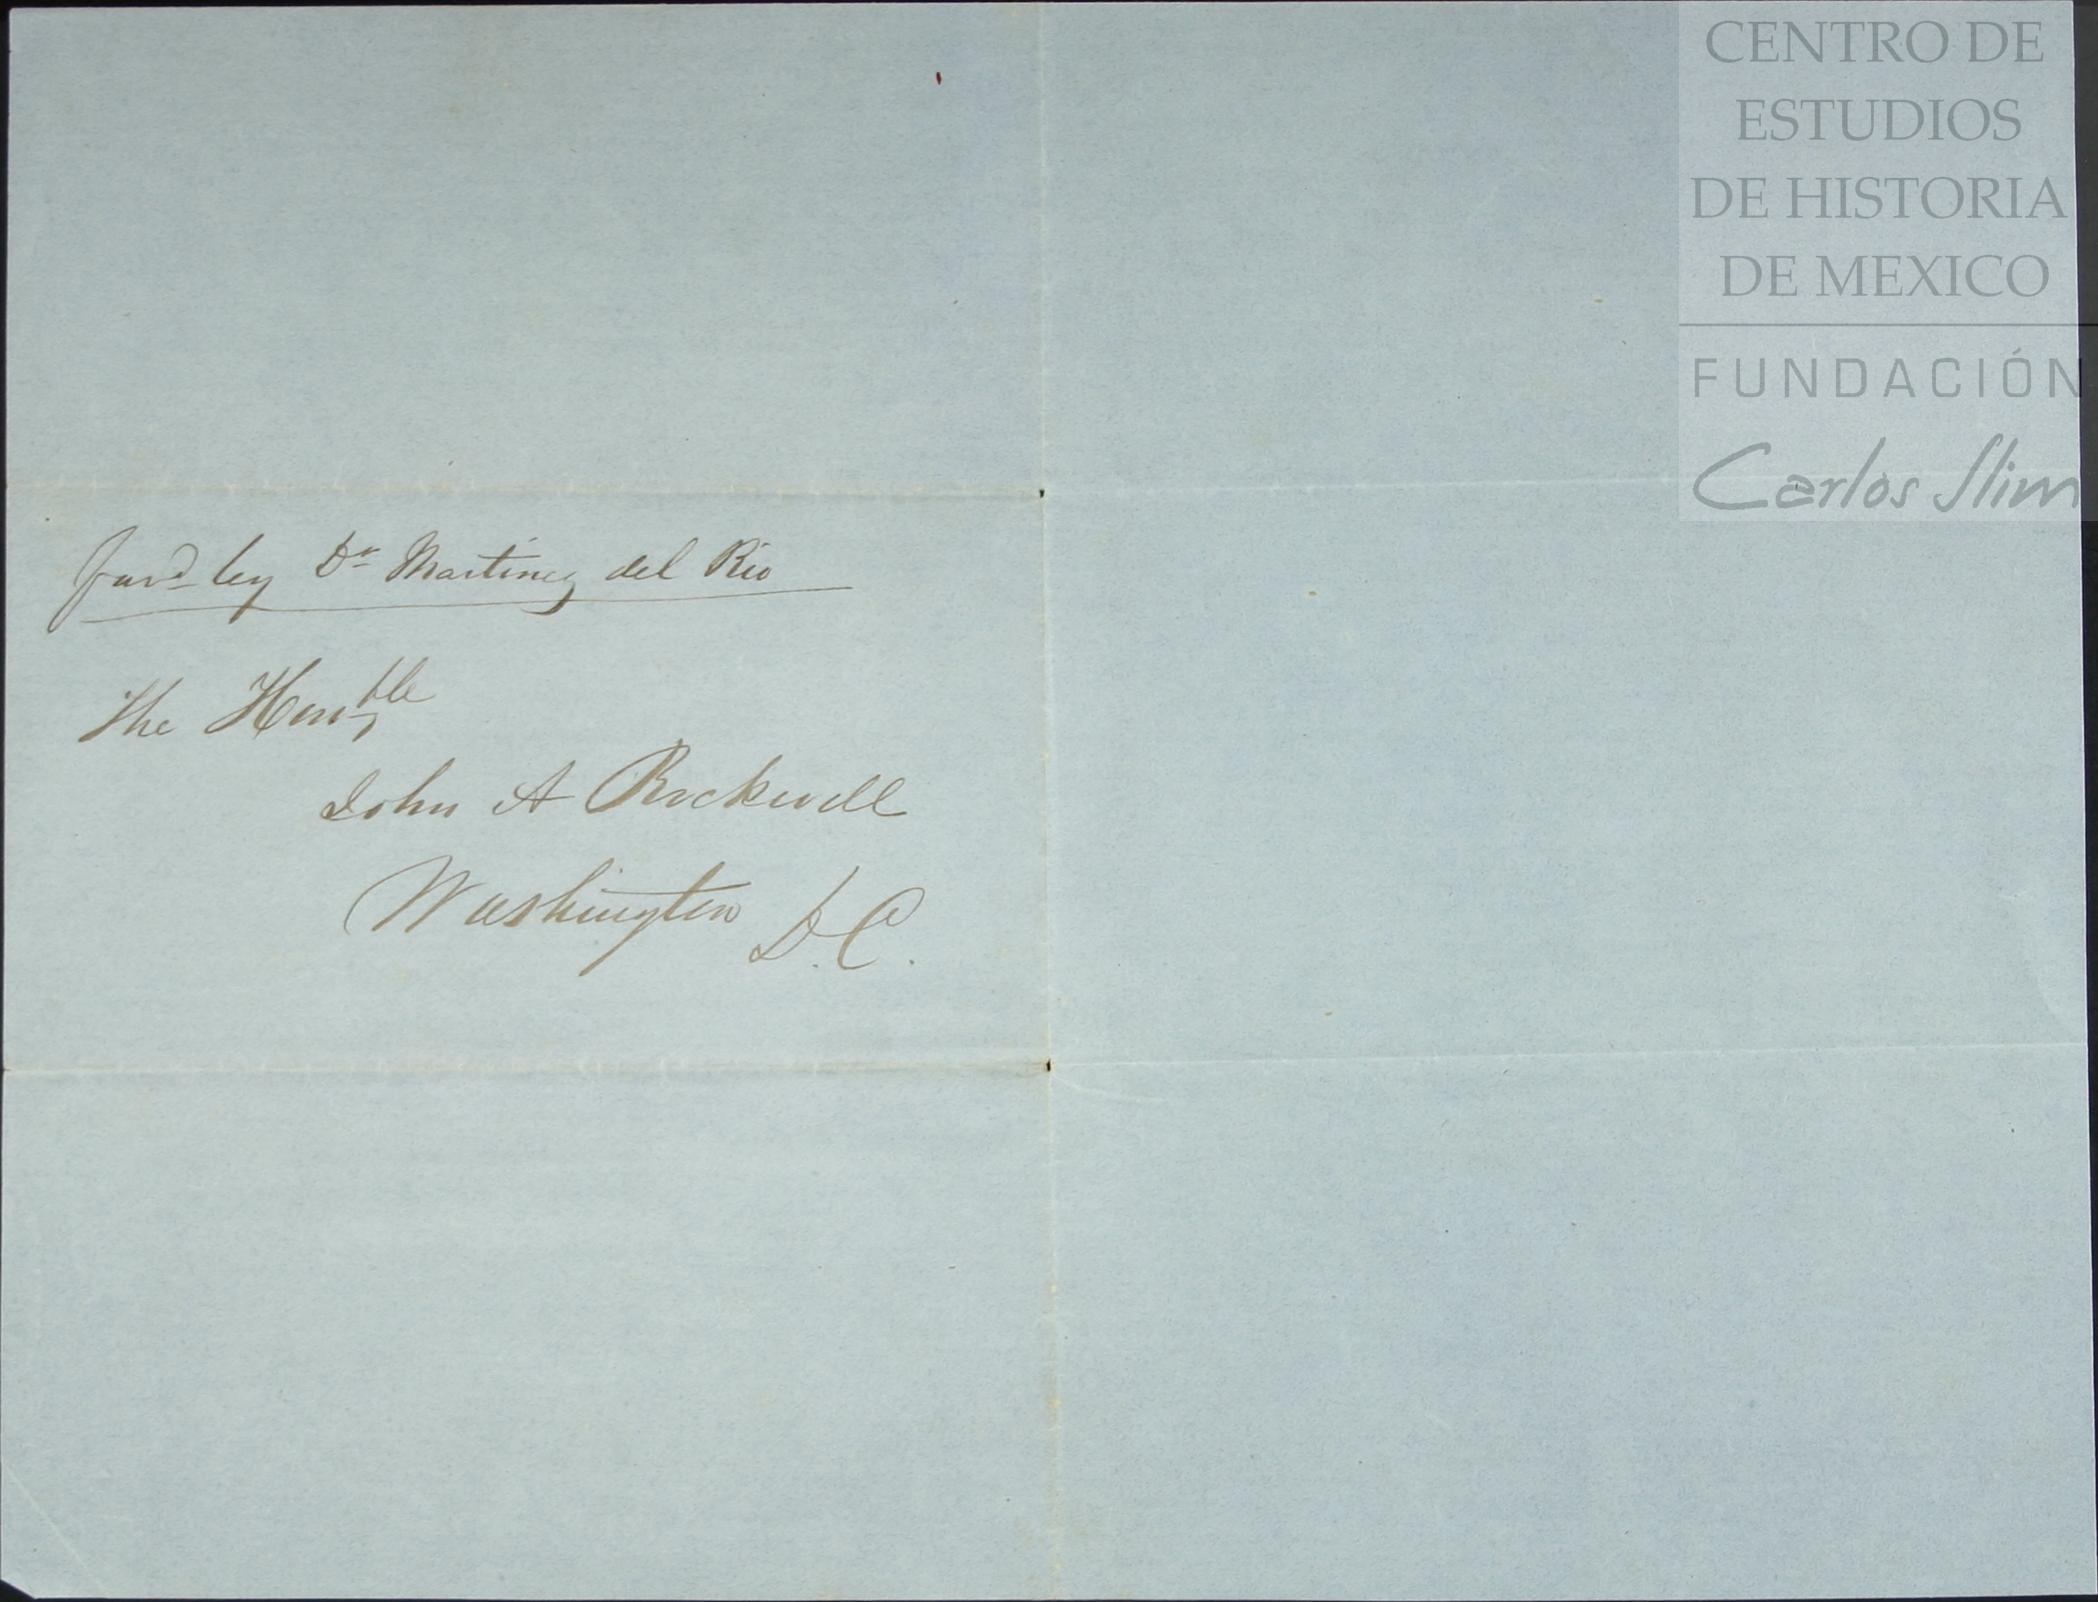 favd by Dr Martinez del Rio
The Honble
John A Rockwell
Washington D.C.
CENTRO DE
ESTUDIOS
DE HISTORIA
DE MEXICO
FUNDACIÓN
Carlos Slim